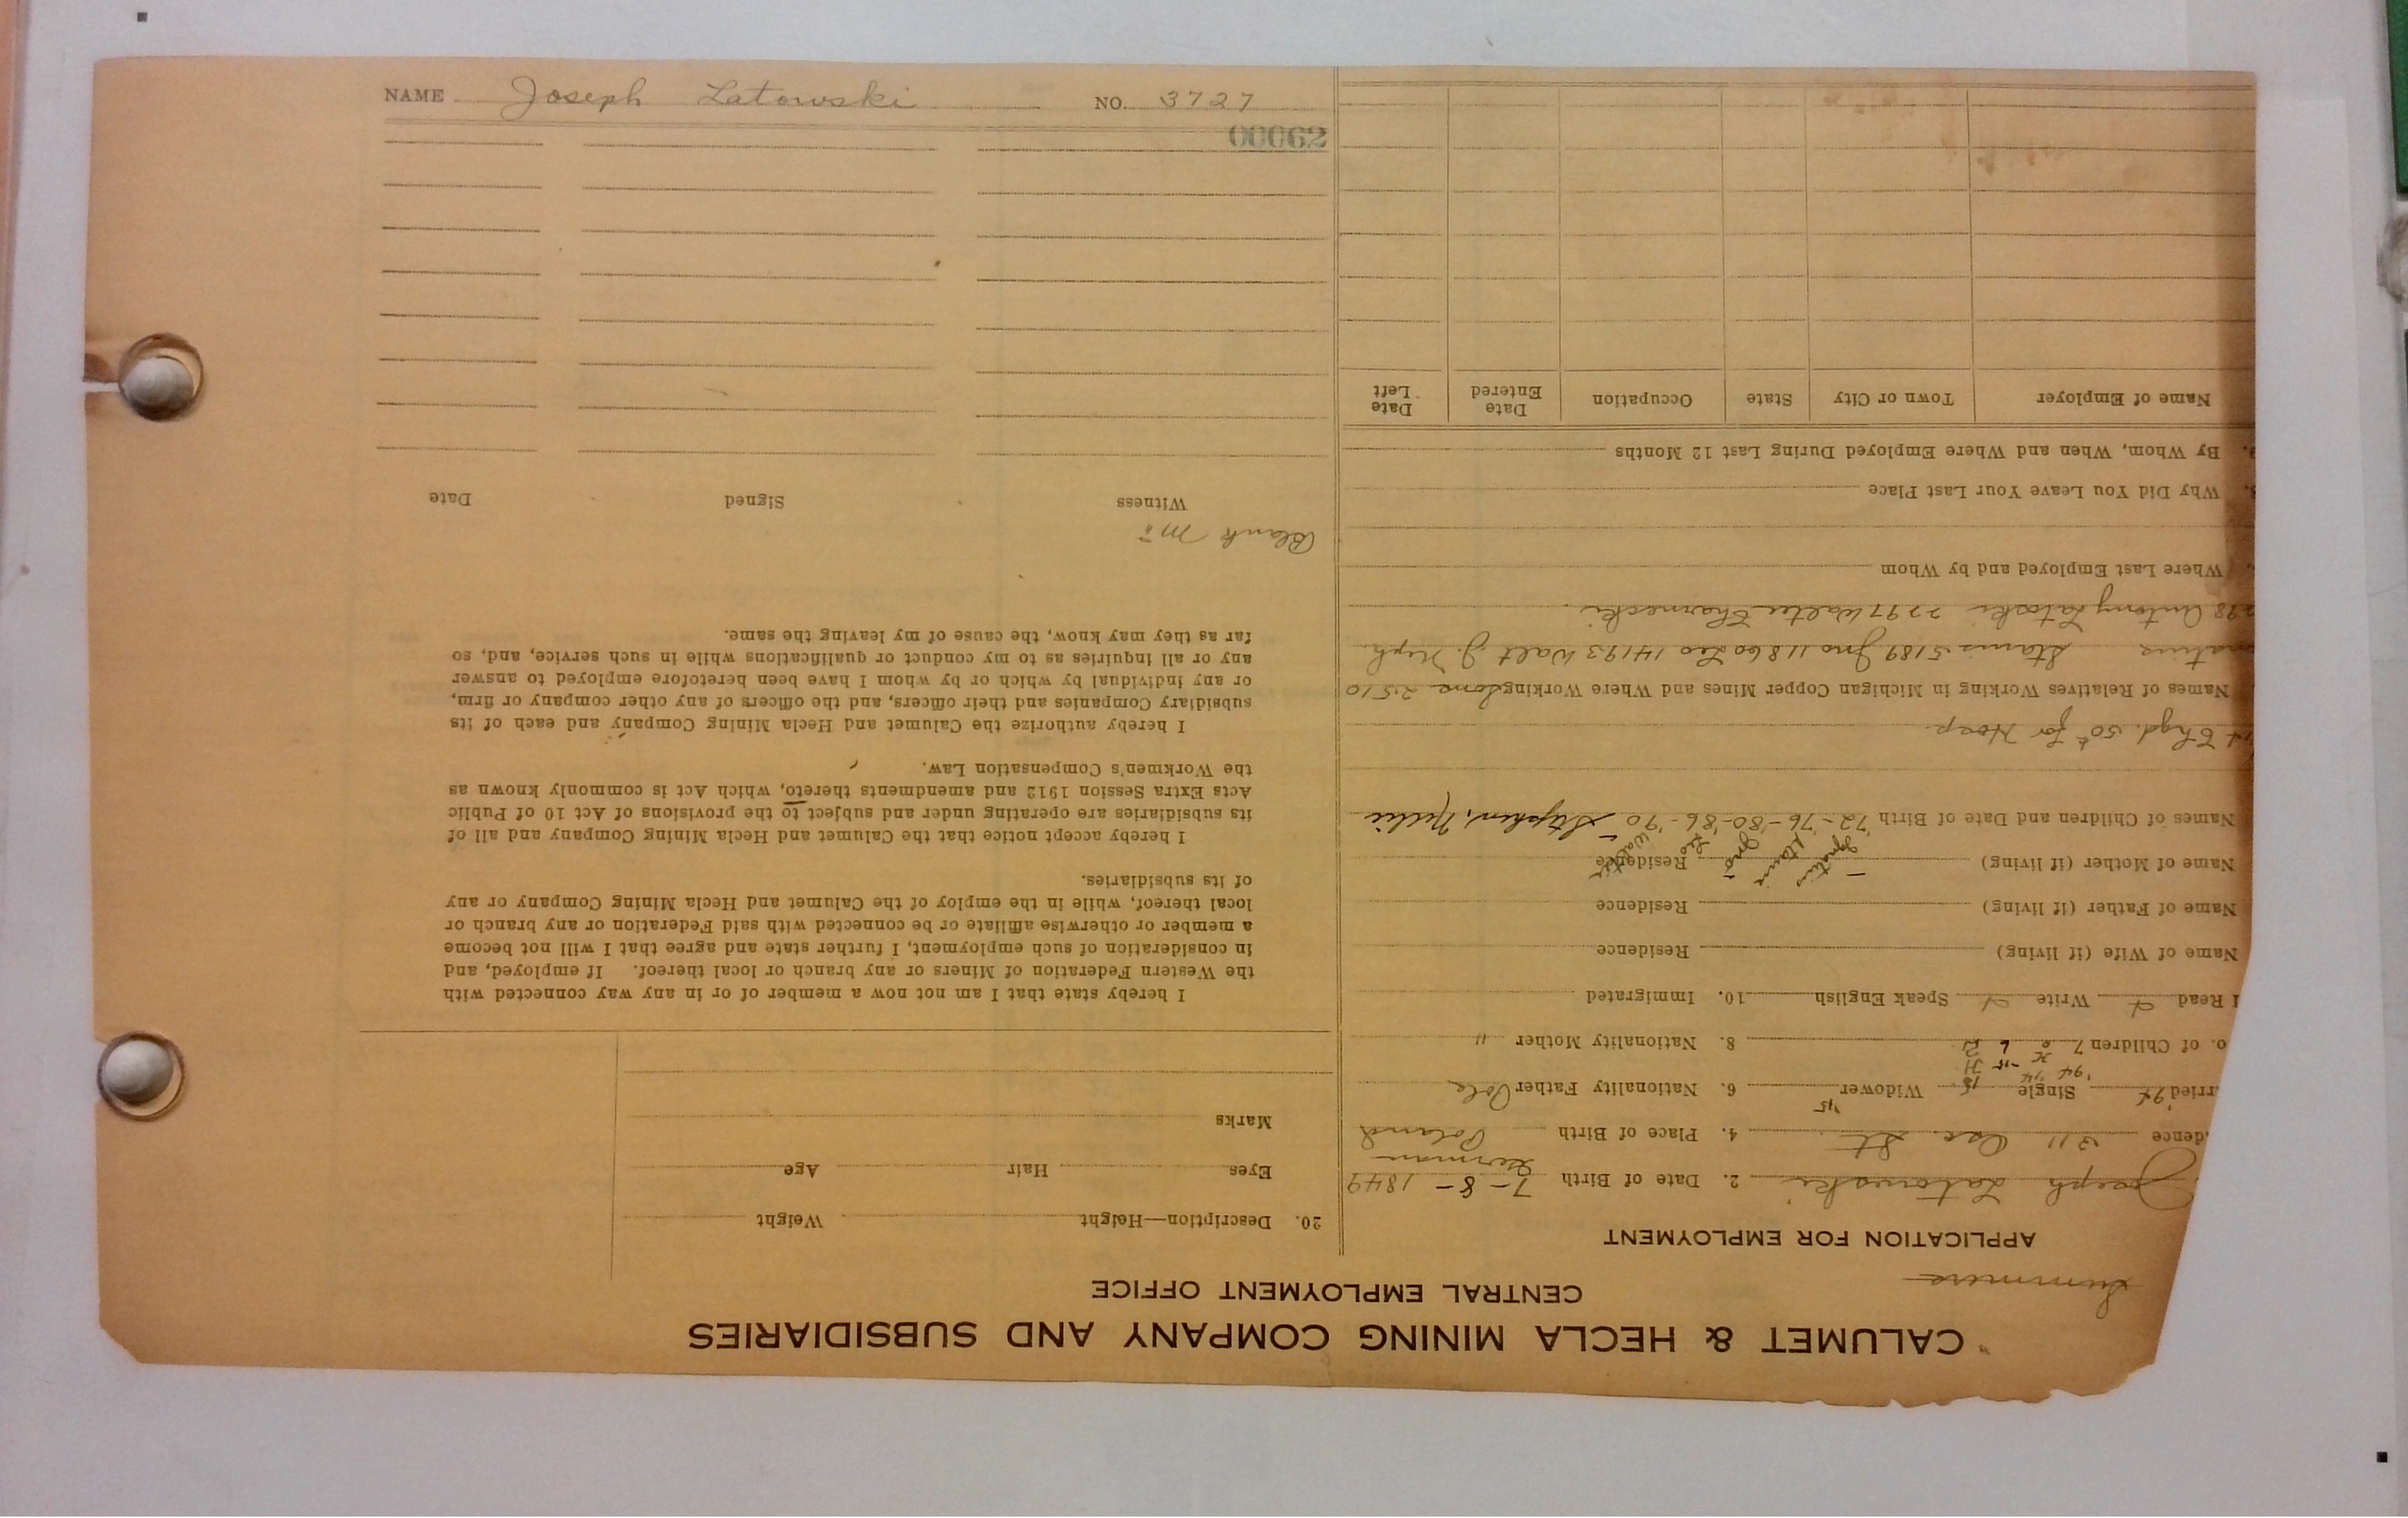 NAME Joseph Latowski NO. 3727
00062
CALUMET & HECLA MINING COMPANY AND SUBSIDIARIES
CENTRAL EMPLOYMENT OFFICE
APPLICATION FOR EMPLOYMENT
Joseph Latowski 2. Date of Birth 7-8-1849
German
dence 311 Osc. St. 4. Place of Birth Poland
rried 94 Single Widower '15 6. Nationality Father Pole
o. of Children 7 8. Nationality Mother "
Read Write Speak English 10. Immigrated
Name of Wife (if living) Residence
Name of Father (if living) Residence
Name of Mother (if living) Residence
Ignatius Stanis Jno Leo Walter
Names of Children and Date of Birth '72-'76-'80-'86-'90 Stephen, Nellie
Chgd. 50¢ for Hosp
Names of Relatives Working in Michigan Copper Mines and Where Working Sons 2510
natius Stanis 5189 Jno 11860 Leo 14193 Walt J. Neph
298 Antony Latoski 2297 Walter Charnecki
Where Last Employed and by Whom
Why Did You Leave Your Last Place
By Whom, When and Where Employed During Last 12 Months
Name of Employer Town or City State Occupation Date Entered Date Left
20. Description—Height Weight
Eyes Hair Age
Marks
I hereby state that I am not now a member of or in any way connected with
the Western Federation of Miners or any branch or local thereof. If employed, and
in consideration of such employment, I further state and agree that I will not become
a member or otherwise affiliate or be connected with said Federation or any branch or
local thereof, while in the employ of the Calumet and Hecla Mining Company or any
of its subsidiaries.
I hereby accept notice that the Calumet and Hecla Mining Company and all of
its subsidiaries are operating under and subject to the provisions of Act 10 of Public
Acts Extra Session 1912 and amendments thereto, which Act is commonly known as
the Workmen's Compensation Law.
I hereby authorize the Calumet and Hecla Mining Company and each of its
subsidiary Companies and their officers, and the officers of any other company or firm,
or any individual by which or by whom I have been heretofore employed to answer
any or all inquiries as to my conduct or qualifications while in such service, and, so
far as they may know, the cause of my leaving the same.
Blank
Witness Signed Date